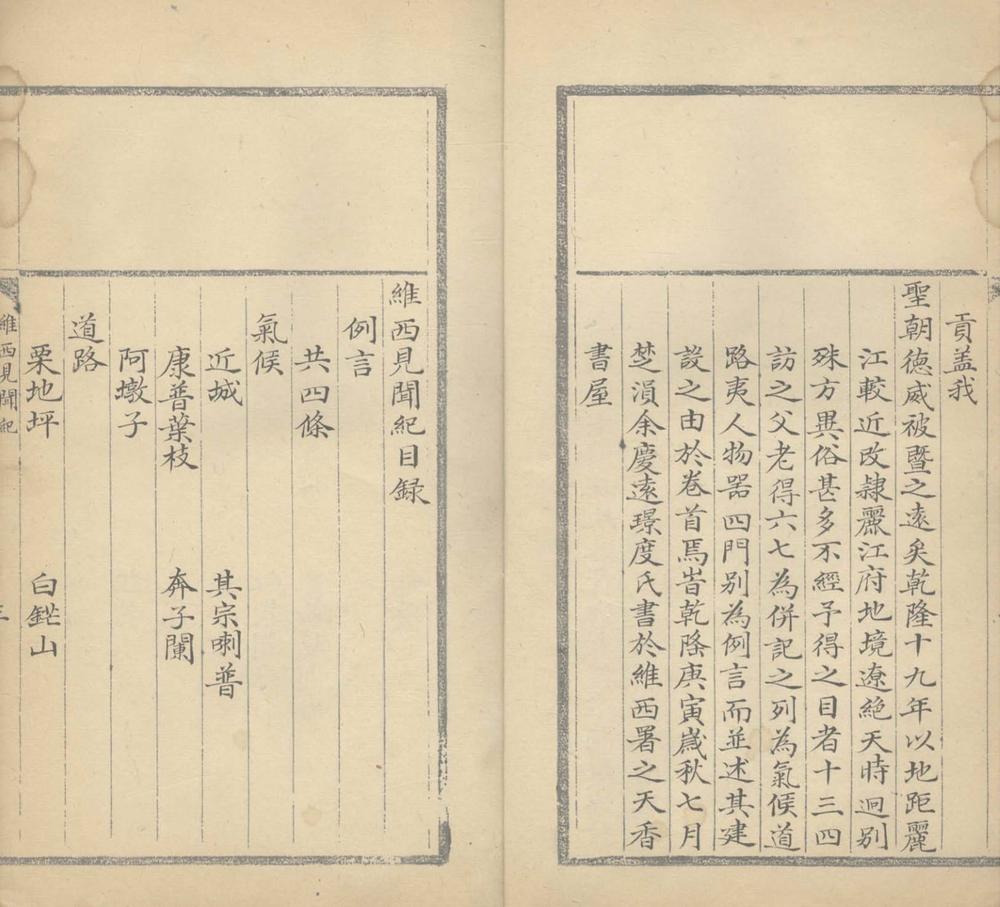 貢盖我
聖朝德威被暨之遠矣乾隆十九年以地距麗
江較近改隸麗江府地境遼絕天時迥别
殊方異俗甚多不經予得之目者十三四
訪之父老得六七為併記之列為氣候道
路夷人物器四門别為例言而並述其建
設之由於卷首焉旹乾隆庚寅歲秋七月
楚溳余慶遠璟度氏書於維西署之天香
書屋
維西見聞紀目録
例言
共四條
氣候
近城 其宗喇普
康普葉枝 奔子闌
阿墩子
道路
栗地坪 白鋩山
維西見聞紀